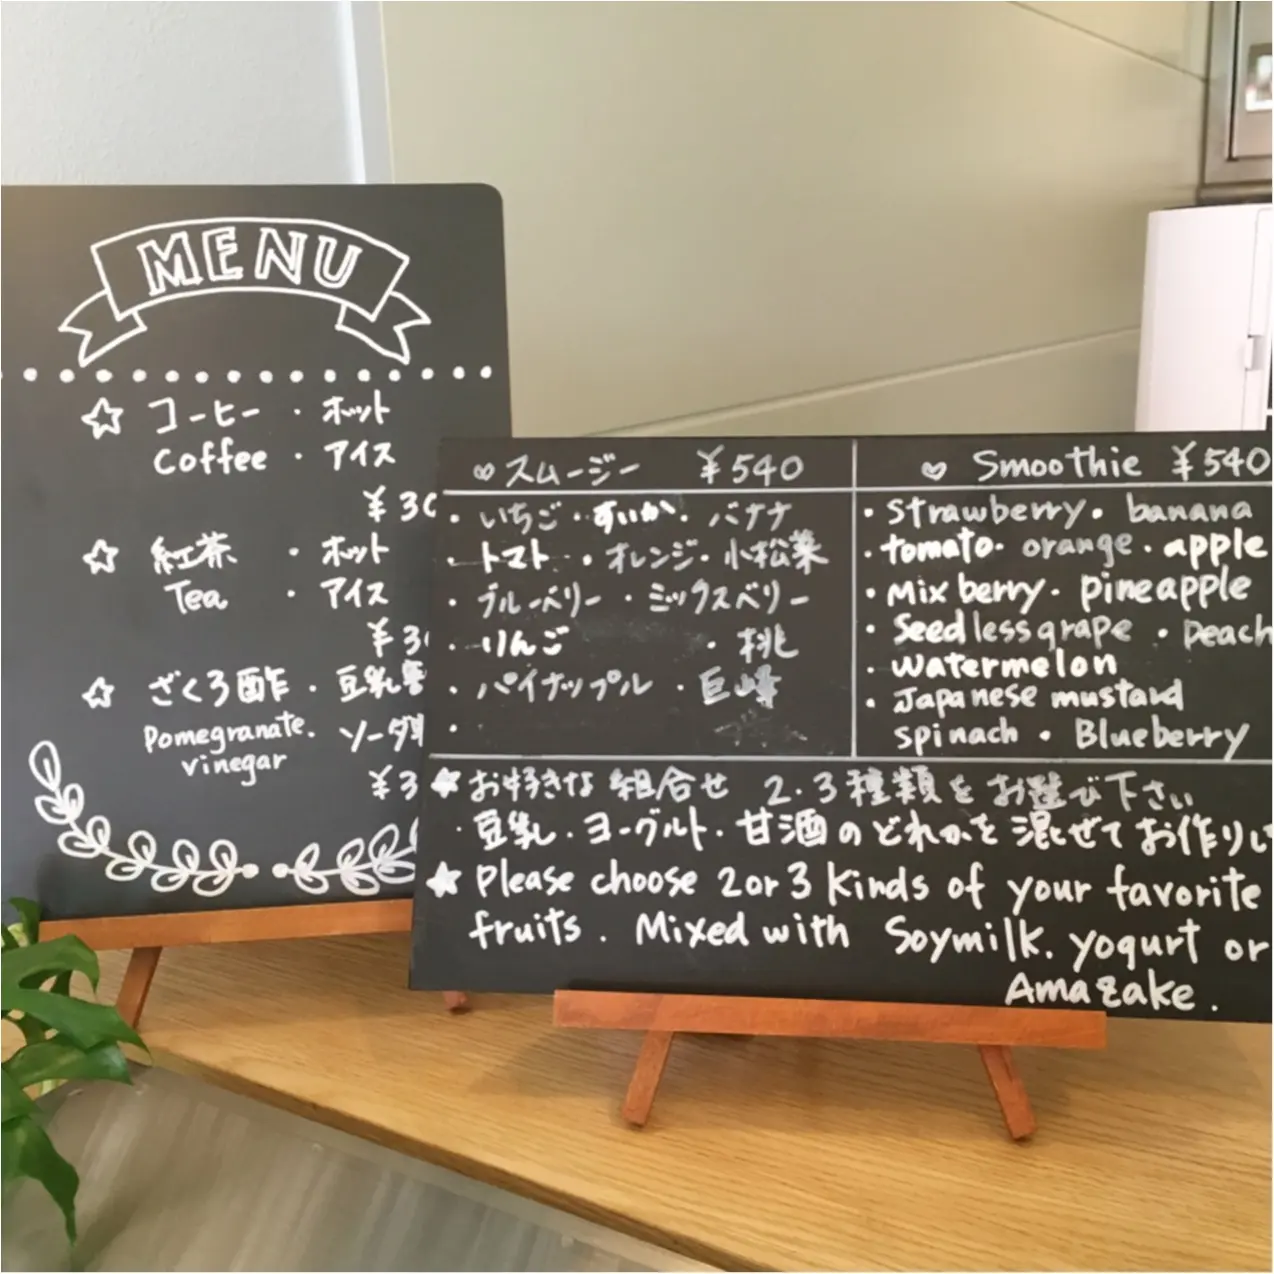 MENU
☆ コーヒー ・ ホット
Coffee ・ アイス
¥30
☆ 紅茶 ・ ホット
Tea ・ アイス
¥3
☆ ざくろ酢 ・ 豆乳
Pomegranate. ソーダ
vinegar
¥3
♡ スムージー ¥540
・ いちご ・ すいか ・ バナナ
・ トマト ・ オレンジ ・ 小松菜
・ ブルーベリー ・ ミックスベリー
・ りんご ・ 桃
・ パイナップル ・ 巨峰
・
♡ Smoothie ¥540
・ Strawberry ・ banana
・ tomato ・ orange ・ apple
・ Mix berry ・ pineapple
・ Seedless grape ・ peach
・ watermelon
・ Japanese mustard
spinach ・ Blueberry
★ お好きな 組合せ 2・3種類をお選び下さい
・豆乳・ヨーグルト・甘酒のどれかを混ぜてお作りし
★ Please choose 2 or 3 kinds of your favorite
fruits. Mixed with Soymilk. yogurt or
Amazake.